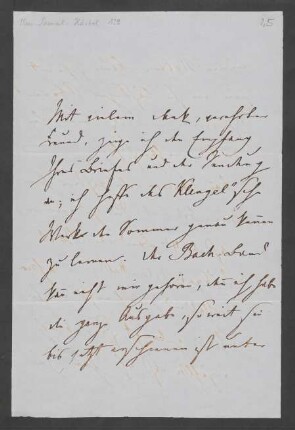 45
Mit vielem Dank, verehrter
Freund, zeige ich den Empfang
Ihres Briefes und der Sendung
an; ich hoffe das Klengel'sche
Werk den Sommer genau kennen
zu lernen. Der Bach-Band
kann nicht mir gehören, denn ich habe
die ganze Ausgabe, soweit sie
bis jetzt erschienen ist unter